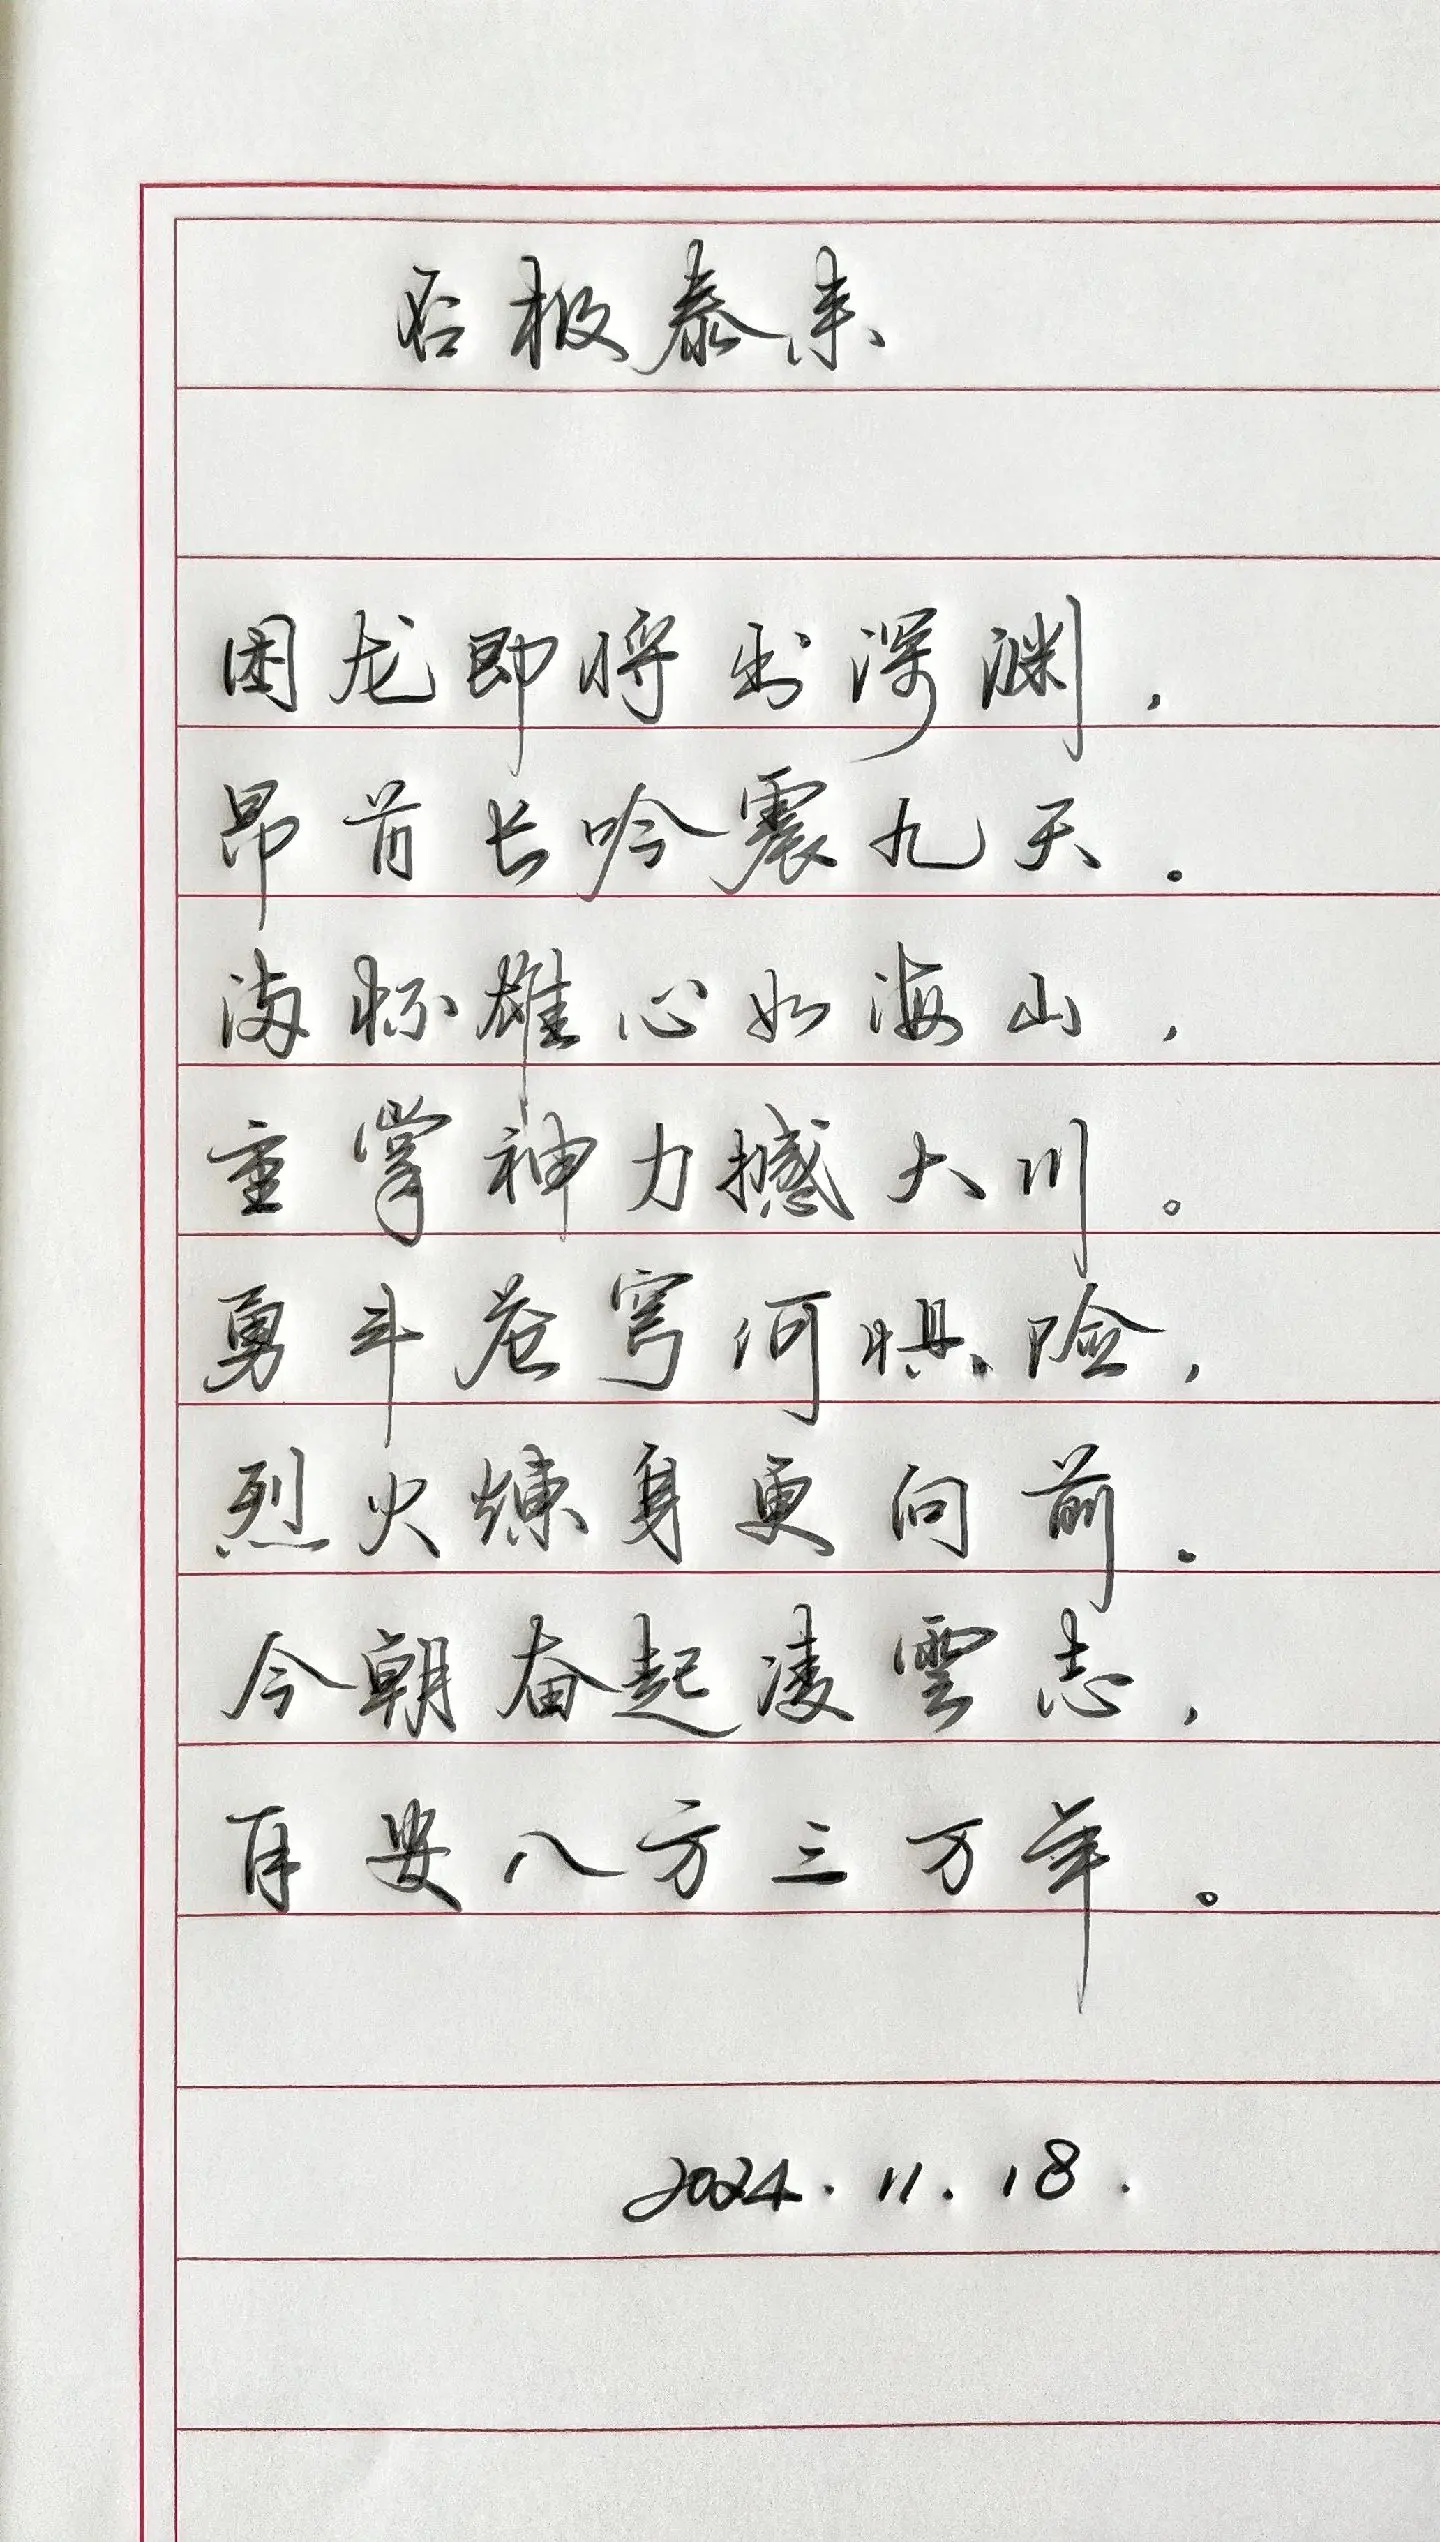 否极泰来
困龙即将出深渊，
昂首长吟震九天．
满怀雄心如海山，
重掌神力撼大川。
勇斗苍穹何惧险，
烈火炼身更向前．
今朝奋起凌雲志，
百安八方三万年。
2024.11.18.